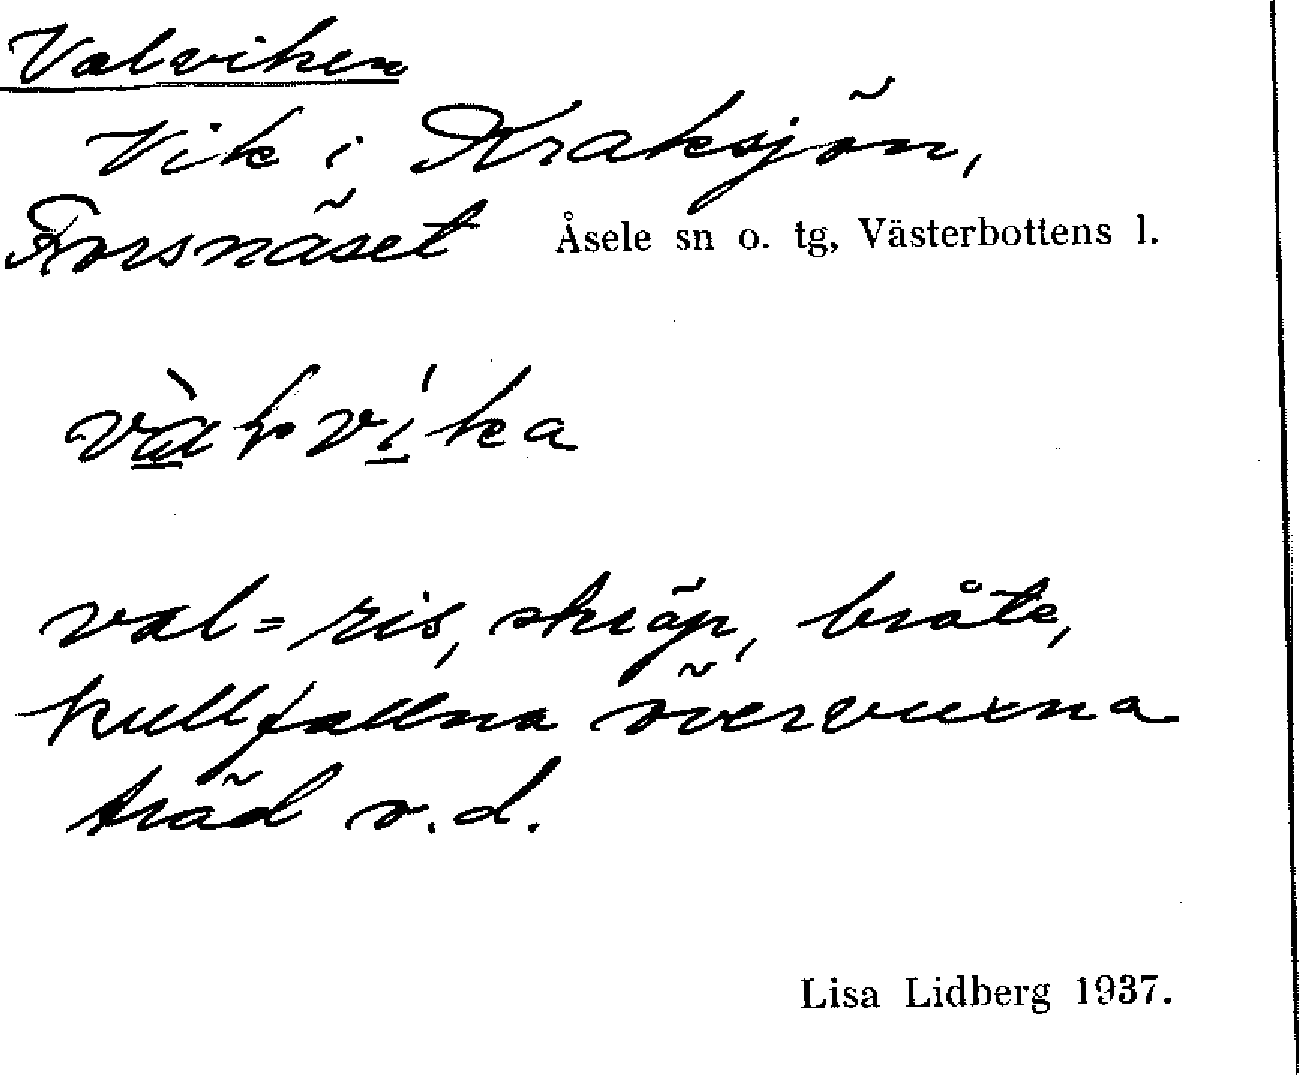 Valviken
Vik i Kraksjön,
Forsnäset Åsele sn o. tg, Västerbottens l.
val = ris, skräp, bråte,
kullfallna övervuxna
träd o.d.
Lisa Lidberg 1937.